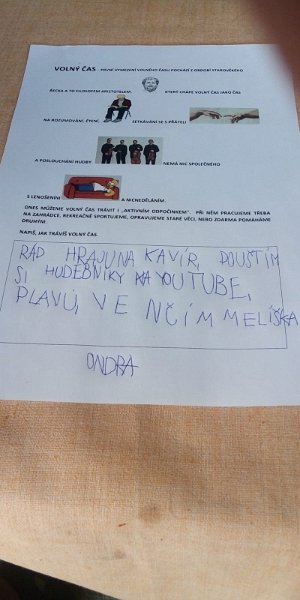 VOLNÝ ČAS - PRVNÍ VYMEZENÍ VOLNÉHO ČASU POCHÁZÍ Z OBDOBÍ STAROVĚKÉHO
ŘECKA A TO FILOSOFEM ARISTOTELEM. KTERÝ CHÁPE VOLNÝ ČAS JAKO ČAS
NA ROZJÍMÁNÍ, ČTENÍ, SETKÁVÁNÍ SE S PŘÁTELI
A POSLOUCHÁNÍ HUDBY. NEMÁ NIC SPOLEČNÉHO
S LENOŠENÍM A NICNEDĚLÁNÍM.
DNES MŮŽEME VOLNÝ ČAS TRÁVIT I „AKTIVNÍM ODPOČINKEM". PŘI NĚM PRACUJEME TŘEBA
NA ZAHRÁDCE, REKREAČNĚ SPORTUJEME, OPRAVUJEME STARÉ VĚCI, NEBO ZDARMA POMÁHÁME
DRUHÝM.
NAPIŠ, JAK TRÁVÍŠ VOLNÝ ČAS.
RÁD HRAJU NA KAVÍR, POUSTÍM
SI HUDEBNÍKY NA YOUTUBE,
PLAVU, VE NČÍM MELÍŠKA
ONDRA